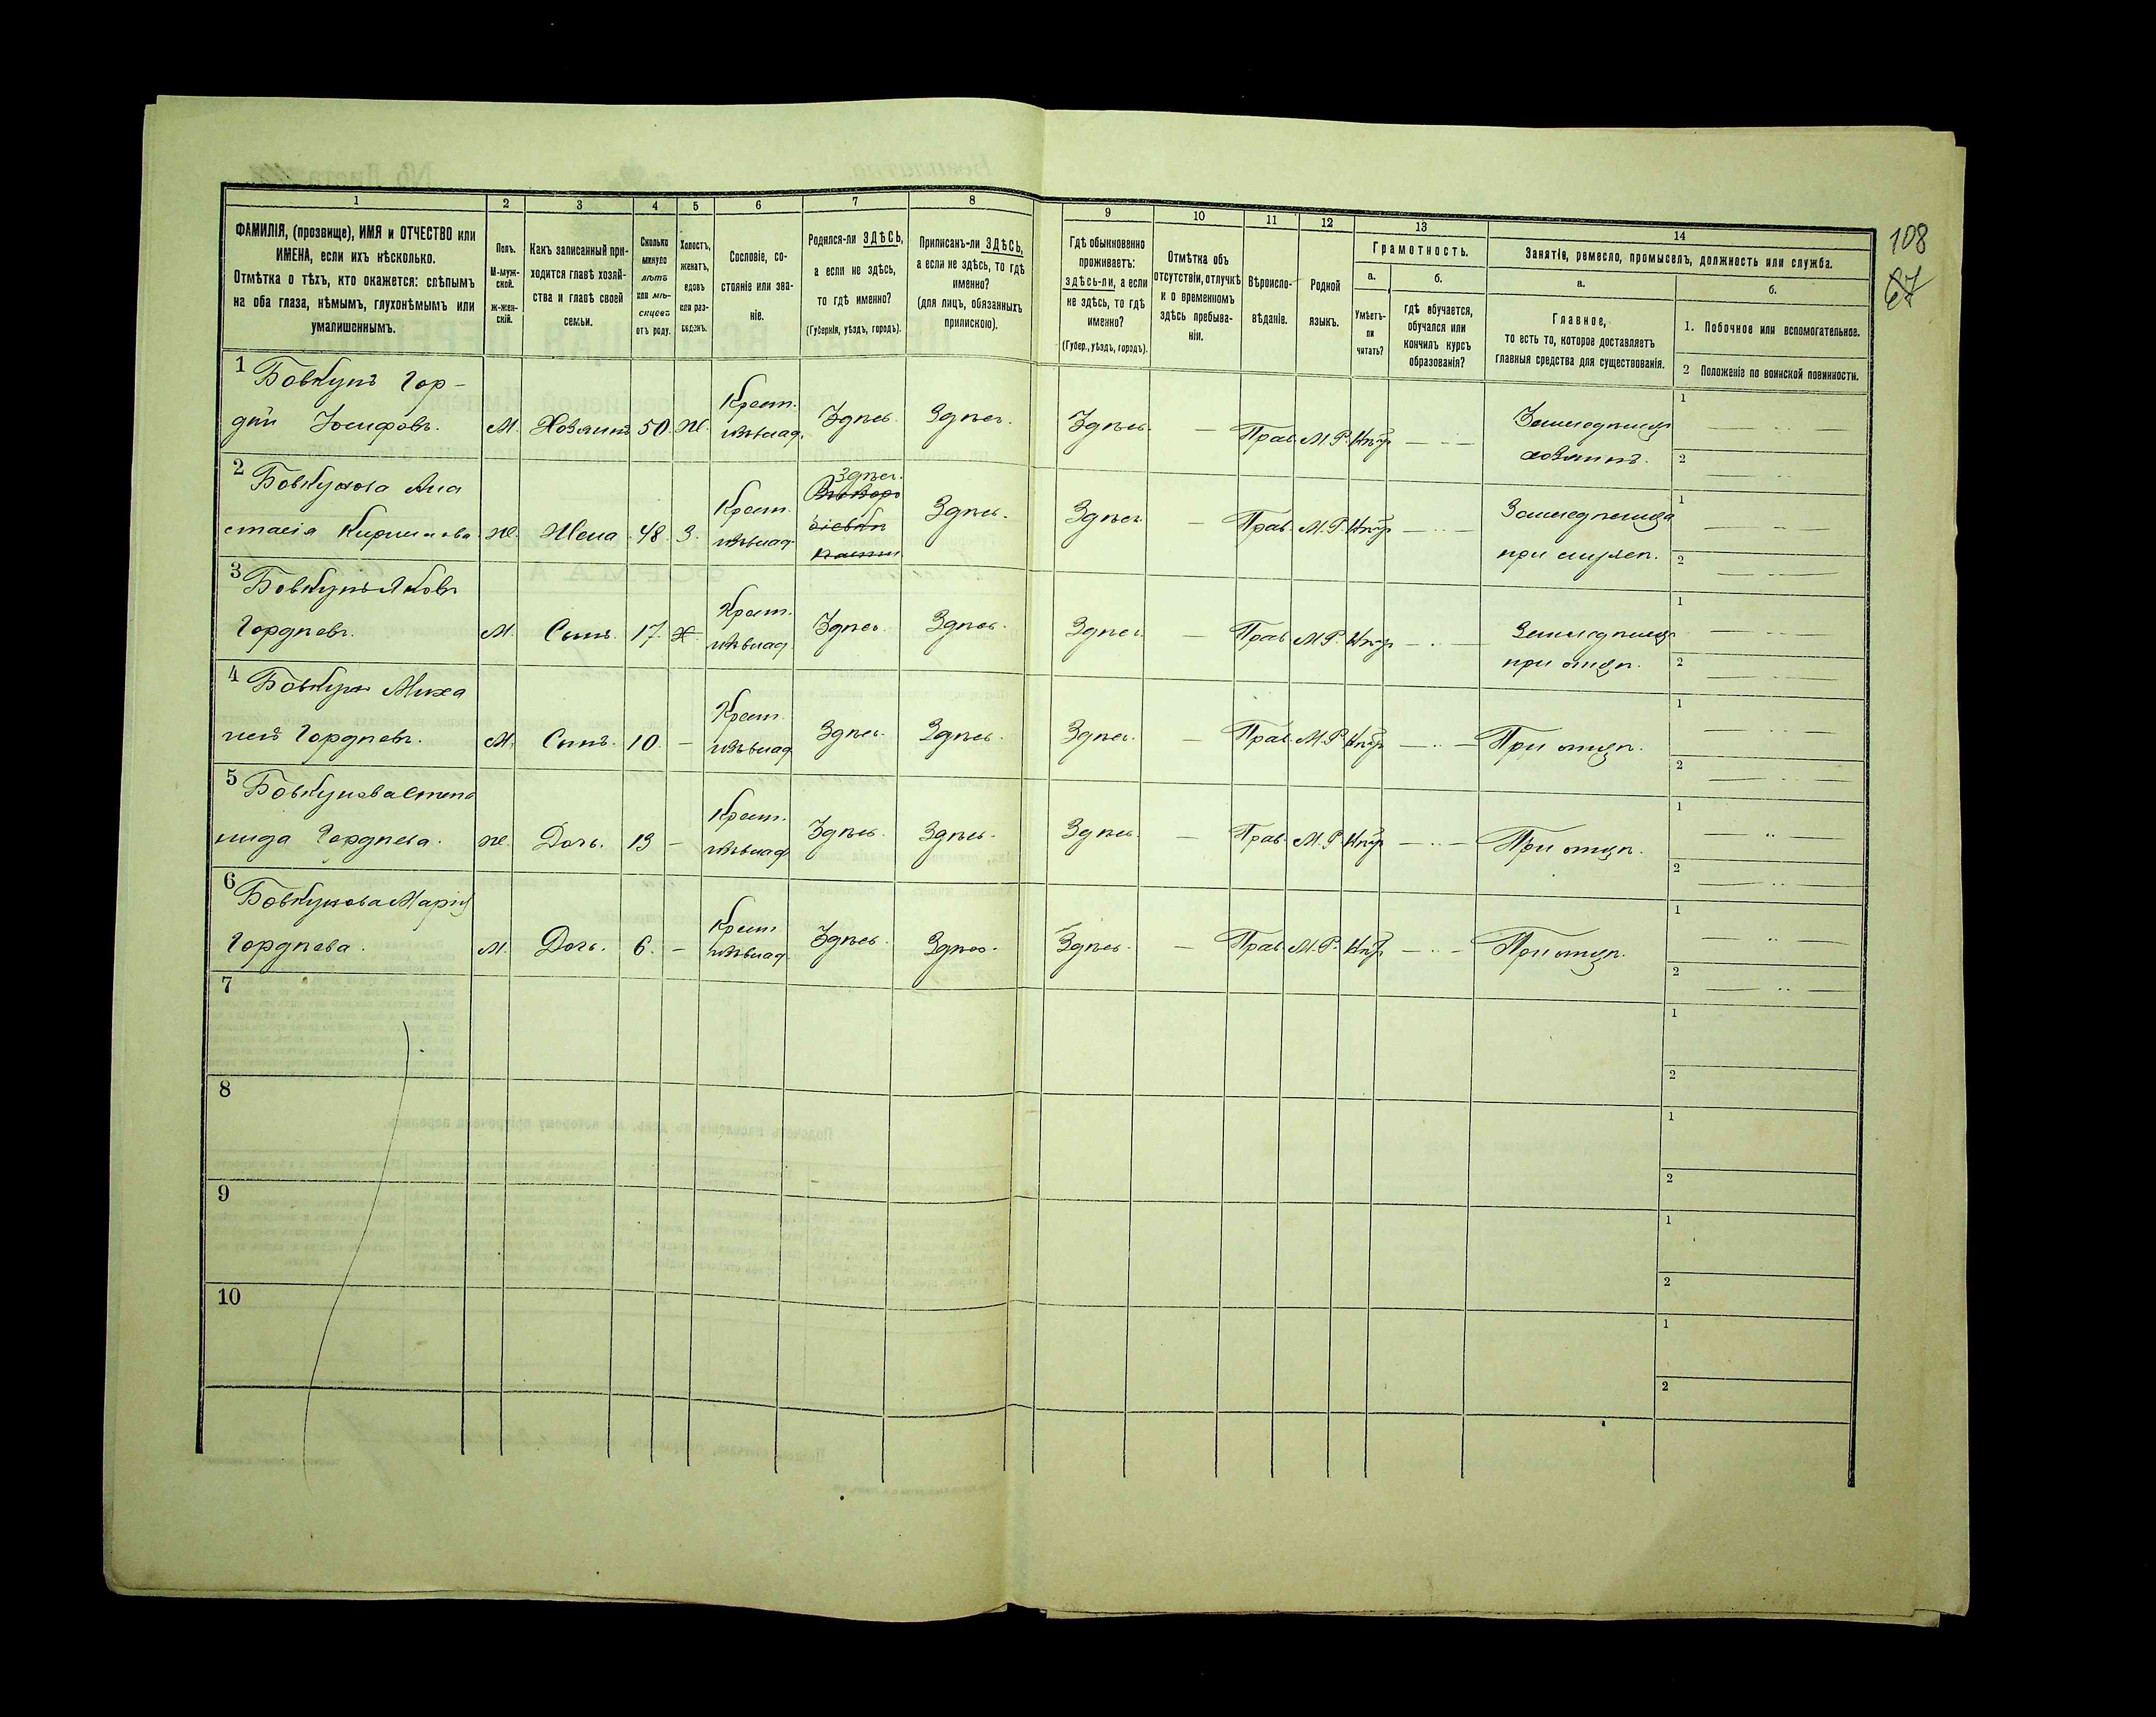 108
67
1 2 3 4 5 6 7 8 9 10 11 12 13 14
ФАМИЛІЯ, (прозвище), ИМЯ и ОТЧЕСТВО или
ИМЕНА, если ихъ нѣсколько.
Отмѣтка о тѣхъ, кто окажется: слѣпымъ
на оба глаза, нѣмымъ, глухонѣмымъ или
умалишеннымъ.
Полъ.
М-муж-
ской.
ж-жен-
скій.
Какъ записанный при-
ходится главѣ хозяй-
ства и главѣ своей
семьи.
Сколько
минуло
лѣтъ
или мѣ-
сяцевъ
отъ роду.
Холостъ,
женатъ,
вдовъ
или раз-
веденъ.
Сословіе, со-
стояніе или зва-
ніе.
Родился-ли ЗДѢСЬ,
а если не здѣсь,
то гдѣ именно?
(Губернія, уѣздъ, городъ).
Приписанъ-ли ЗДѢСЬ,
а если не здѣсь, то гдѣ
именно?
(для лицъ, обязанныхъ
припискою).
Гдѣ обыкновенно
проживаетъ:
здѣсь-ли, а если
не здѣсь, то гдѣ
именно?
(Губер., уѣздъ, городъ).
Отмѣтка объ
отсутствіи, отлучкѣ
и о временномъ
здѣсь пребыва-
ніи.
Вѣроиспо-
вѣданіе.
Родной
языкъ.
Грамотность.
а.
Умѣетъ-
ли
читать?
б.
гдѣ обучается,
обучался или
кончилъ курсъ
образованія?
Занятіе, ремесло, промыселъ, должность или служба.
а.
Главное,
то есть то, которое доставляетъ
главныя средства для существованія.
б.
1. Побочное или вспомогательное.
2 Положеніе по воинской повинности.
1 Бовкунъ Гор-
дій Іосифовъ. М. Хозяинъ 50. Ж. Крест. Здѣсь. Здѣсь. Здѣсь. — Прав. М.Р. — Земледѣлецъ
хозяинъ.
1
2
2 Бовкунова Ана
стасія Кирилова. Ж. Жена 48. З. Крест. Здѣсь. Здѣсь. Здѣсь. — Прав. М.Р. — Земледѣлица
при мужѣ.
1
2
3 Бовкунъ Яковъ
Гордѣевъ. М. Сынъ. 17. Х Крест. Здѣсь. Здѣсь. Здѣсь. — Прав. М.Р. — Земледѣлецъ
при отцѣ.
1
2
4 Бовкунъ Миха
илъ Гордѣевъ. М. Сынъ. 10. — Крест. Здѣсь. Здѣсь. Здѣсь. — Прав. М.Р. — При отцѣ.
1
2
5 Бовкунова Степа
нида Гордѣева. Ж. Дочь. 13 — Крест. Здѣсь. Здѣсь. Здѣсь. — Прав. М.Р. — При отцѣ.
1
2
6 Бовкунова Марія
Гордѣева. М. Дочь. 6. — Крест Здѣсь. Здѣсь. Здѣсь. — Прав. М.Р. — При отцѣ.
1
2
7
1
2
8
1
2
9
1
2
10
1
2